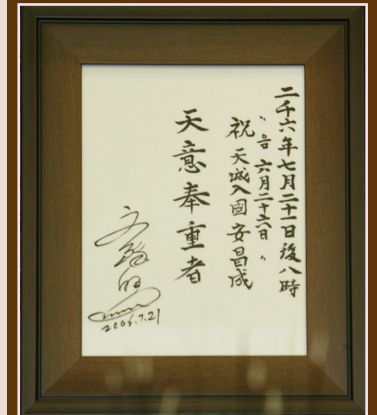 二千六年七月二十一日後八時
"음 六月二十六日"
祝 天城入國 安昌成
天意奉重者
文鮮明
2006.7.21